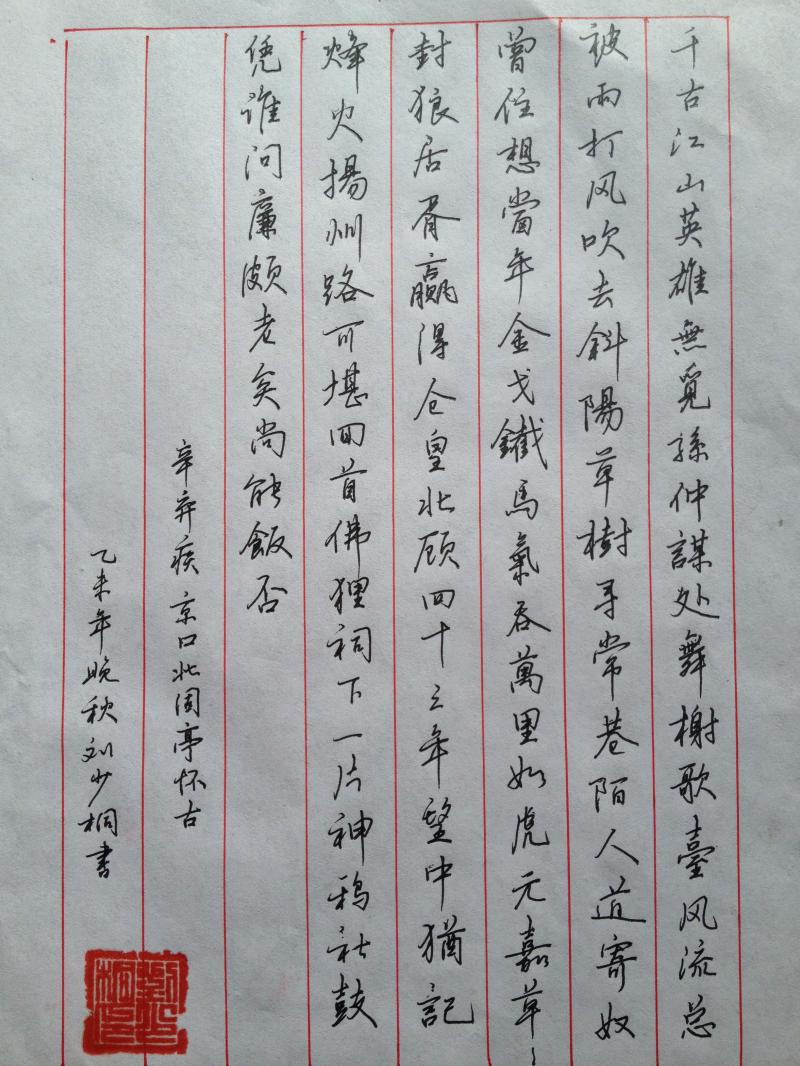 千古江山英雄無覓孫仲謀处舞榭歌臺风流总
被雨打风吹去斜陽草樹寻常巷陌人道寄奴
曾住想當年金戈鐵馬氣吞萬里如虎元嘉草々
封狼居胥贏得仓皇北顾四十三年望中猶記
烽火揚州路可堪回首佛狸祠下一片神鸦社鼓
凭谁问廉颇老矣尚能飯否
辛弃疾京口北固亭怀古
乙未年晚秋刘少桐書